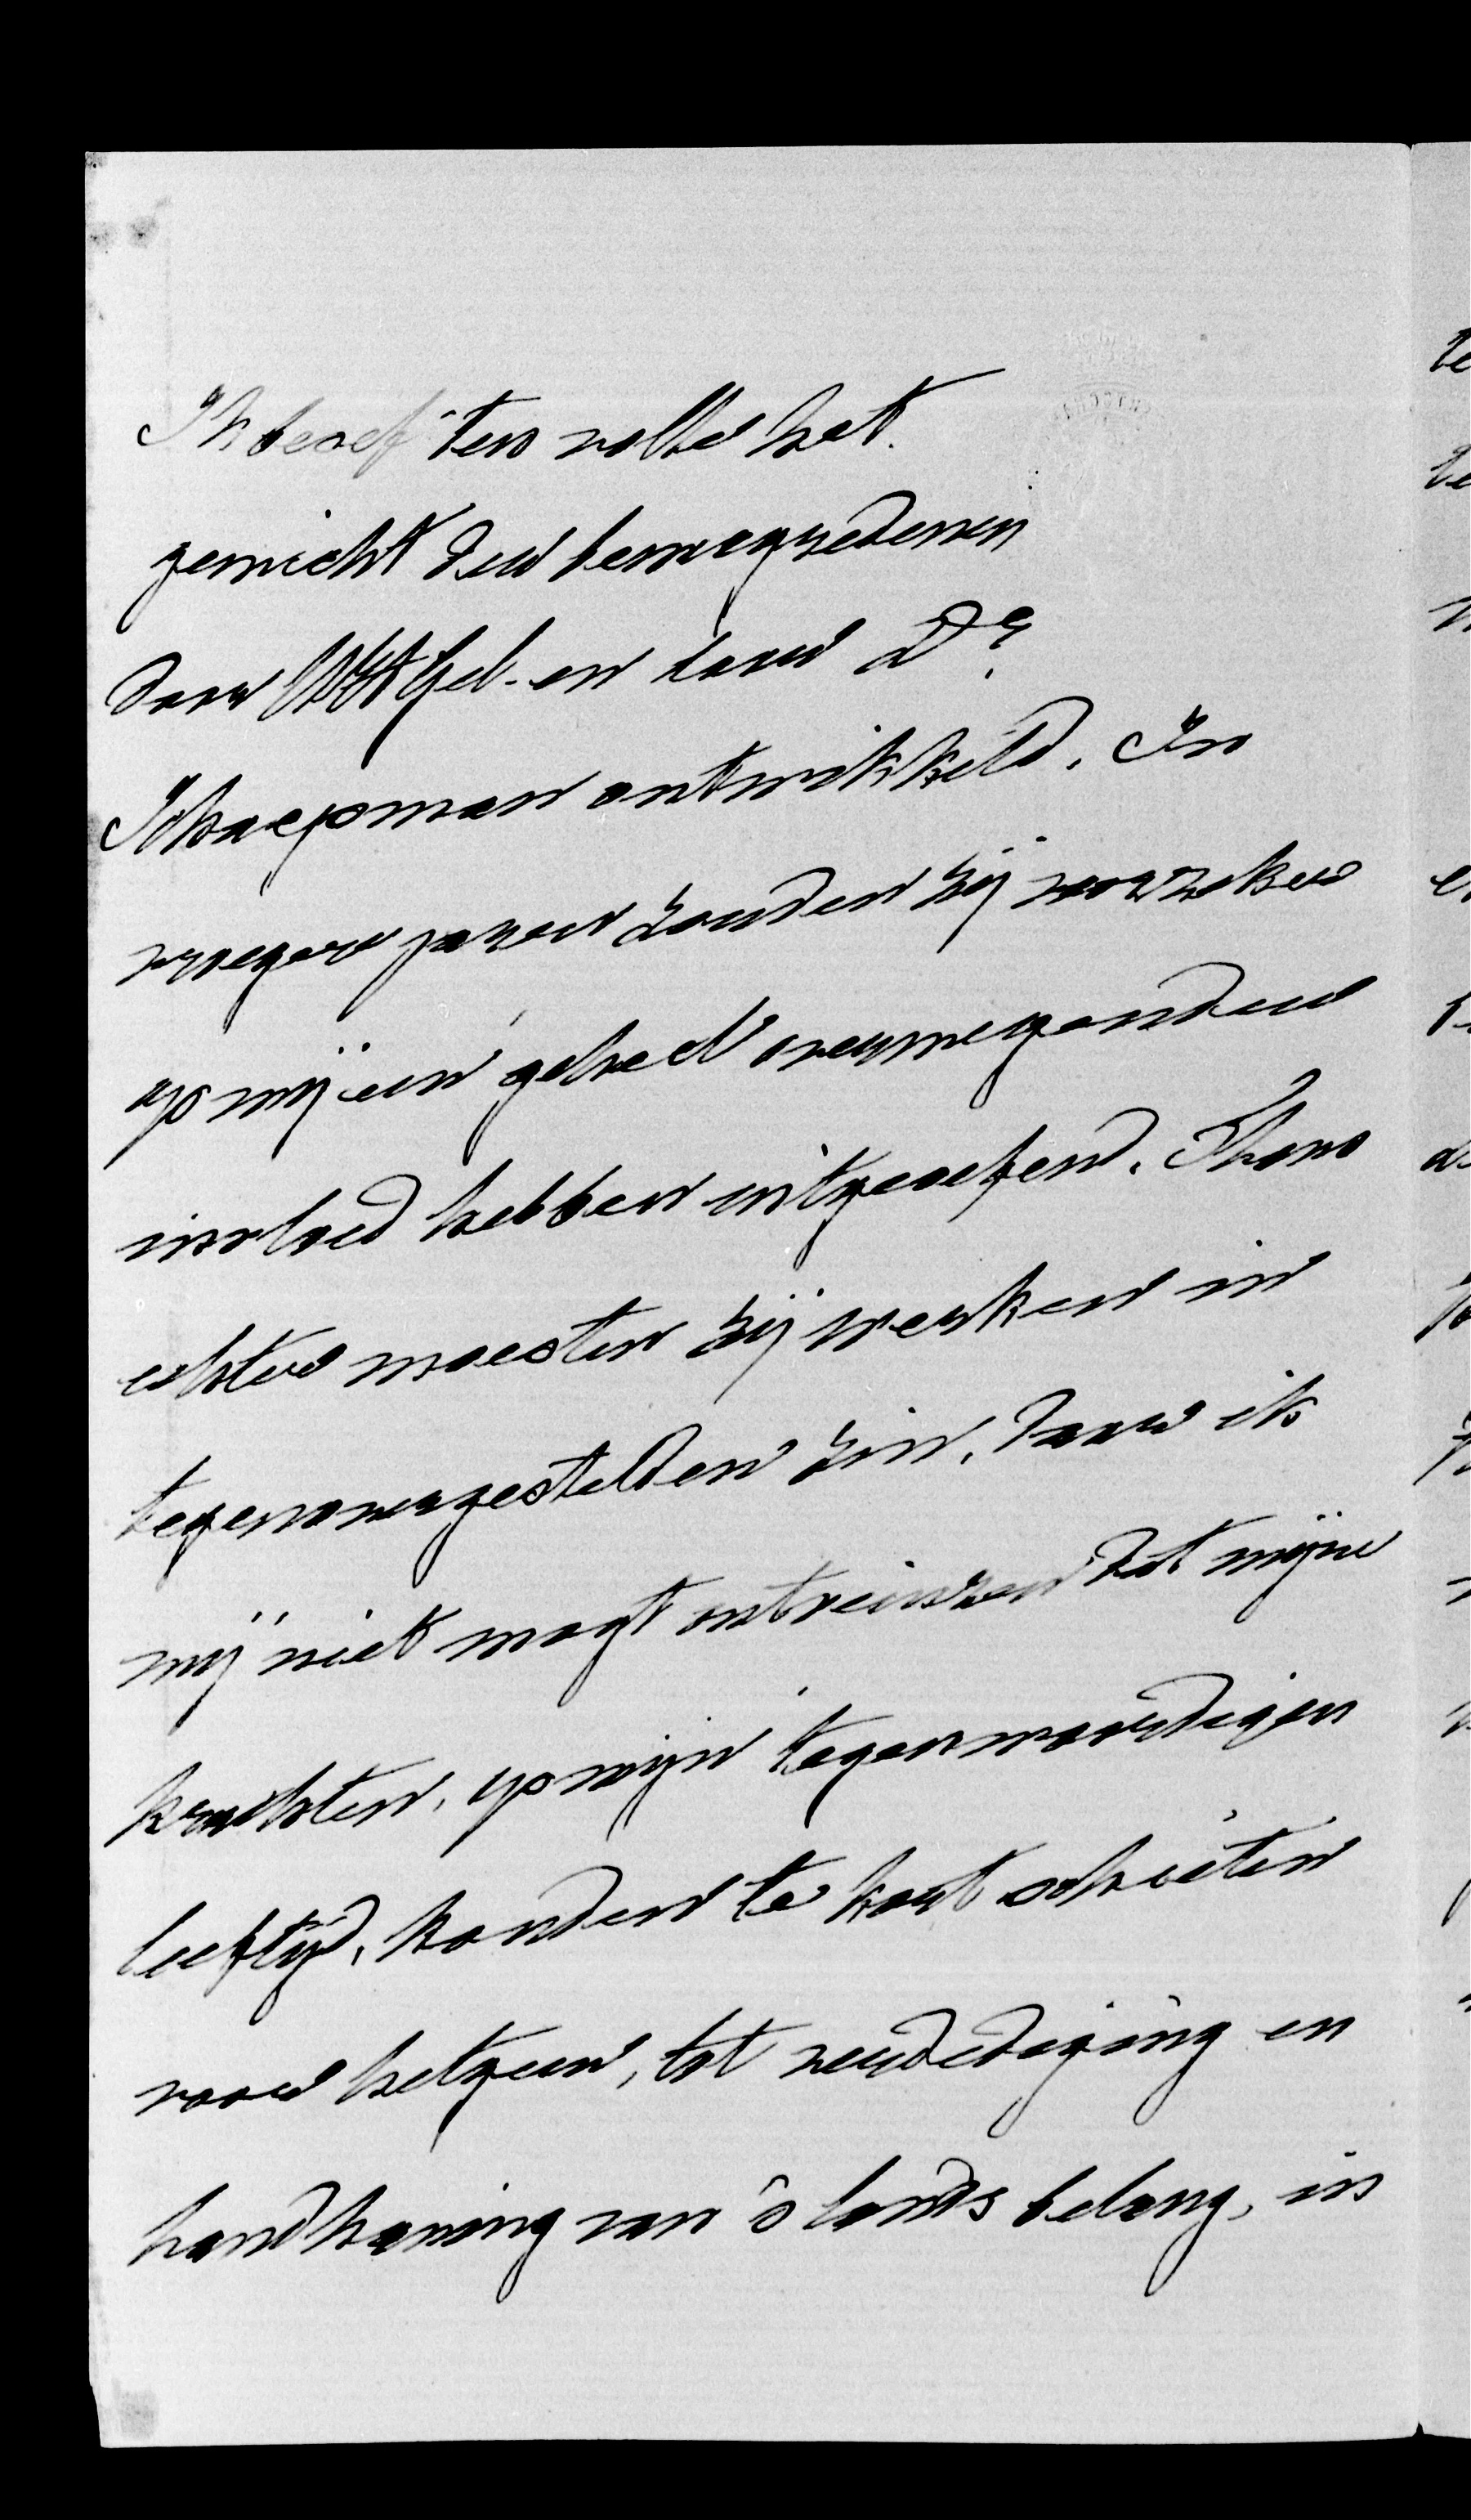 Ik besef ten volle het
gewicht der beweegredenen
door UWelGel. en door Dr.
Schaepman ontwikkeld. In
vroeger jaren zouden zij voorzeker
op mij een geheel overwegenden
invloed hebben uitgeoefend. Thans
echter moesten zij werken in
tegenovergestelden zin, daar ik
mij niet mogt ontveinzen dat mijne
krachten, op mijn tegenwoordigen
leeftijd, konden te kort schieten
voor hetgeen, tot verdediging en
handhaving van 's lands belang, in